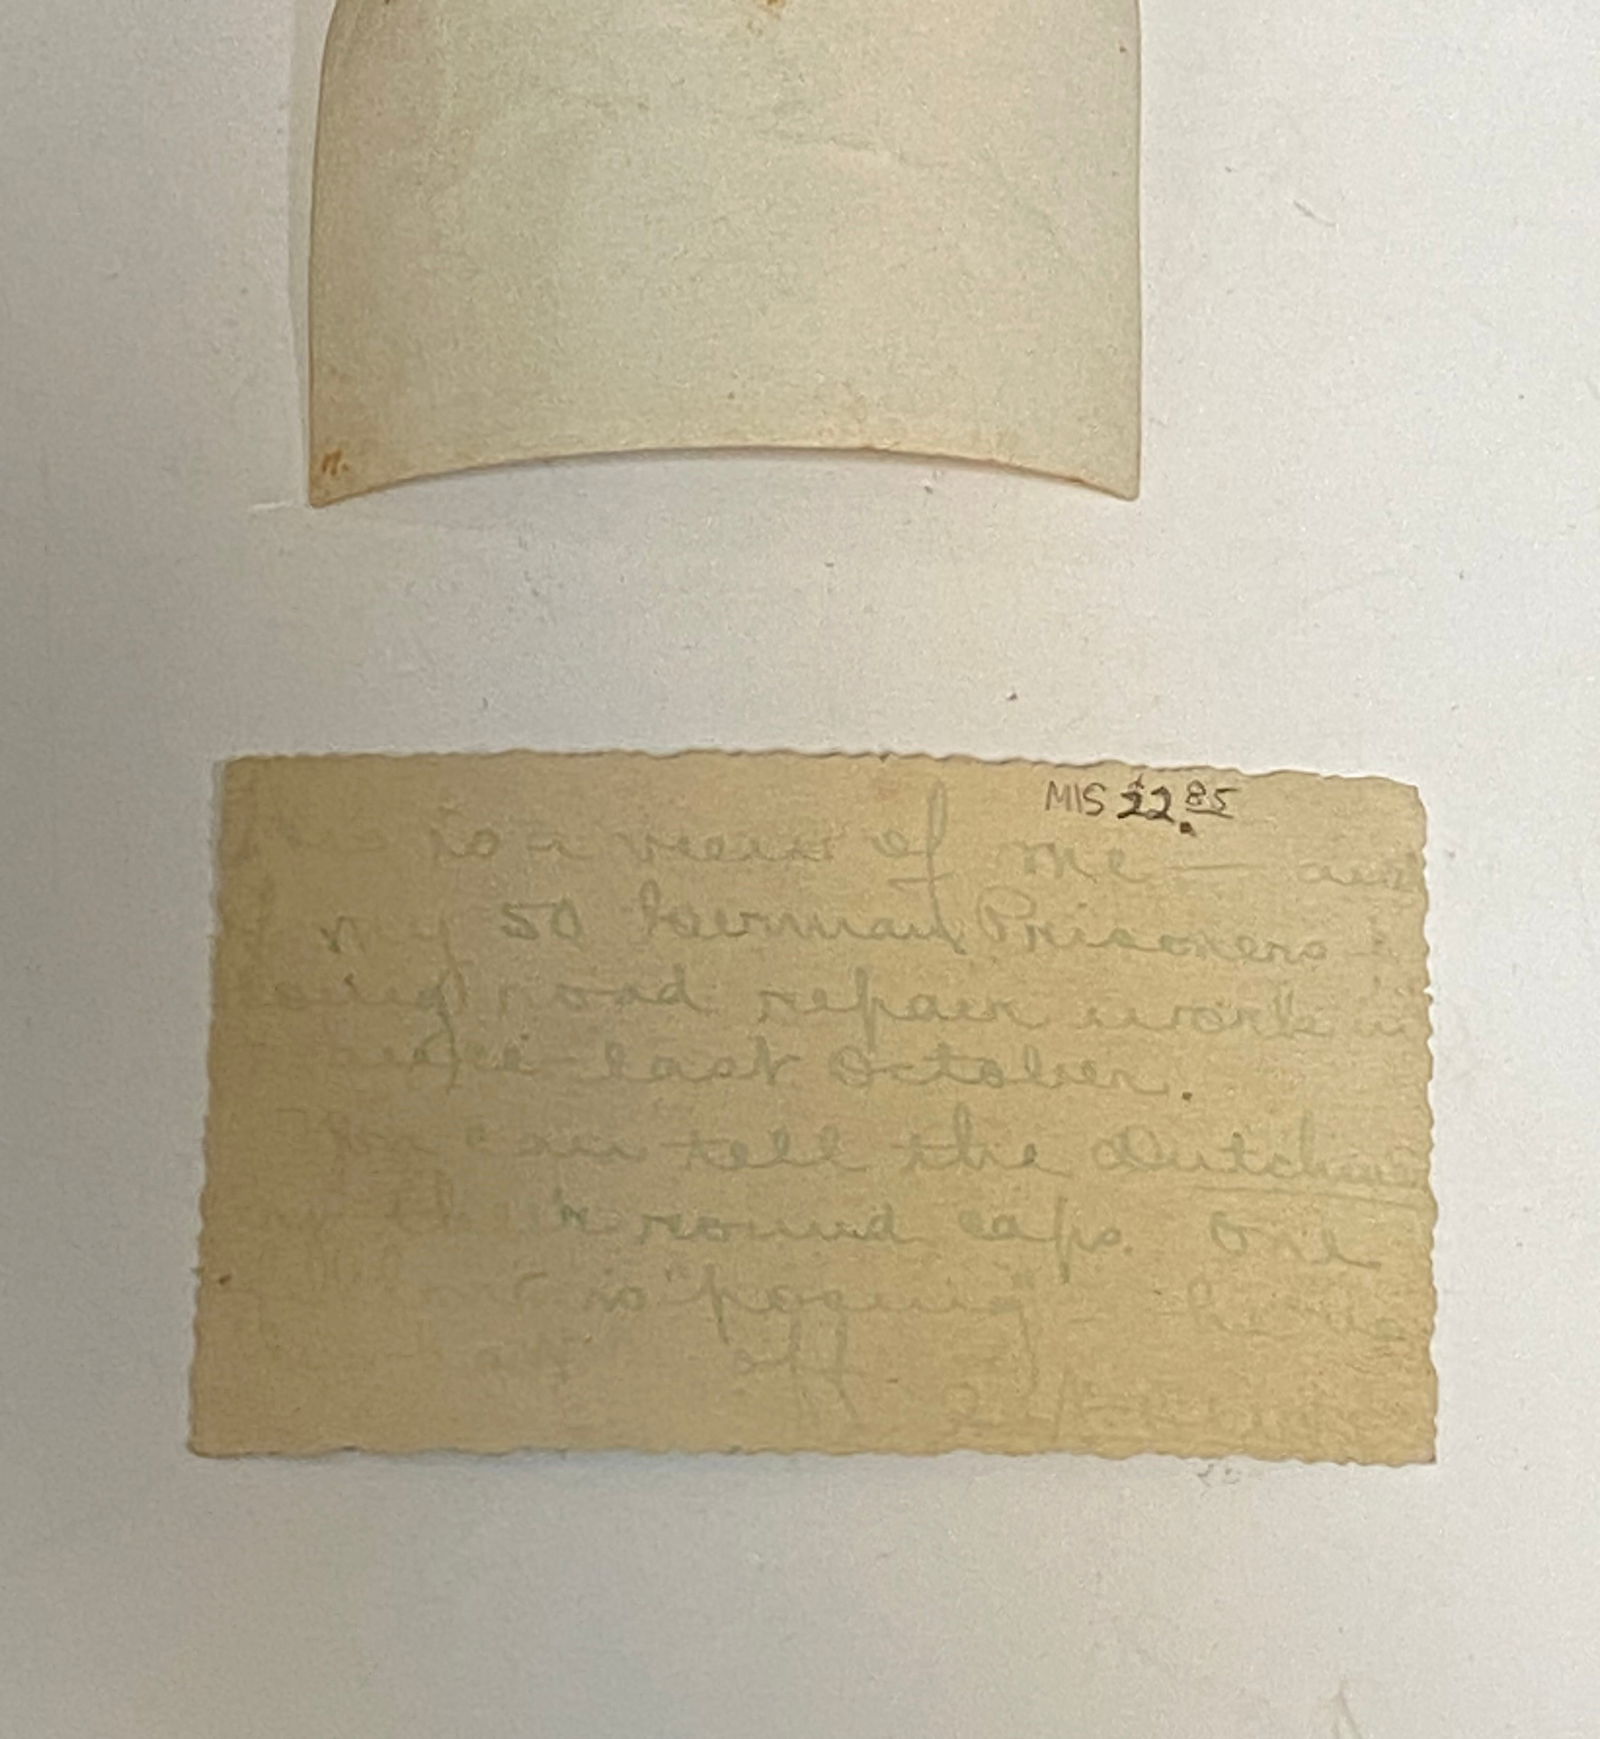 MIS 22.85
is a view of me — and
my 50 German Prisoners
doing road repair work in
last October.
You can tell the Dutchmen
their round caps. One
is "posing" — having
off